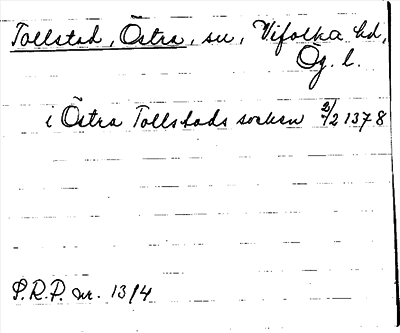 Tollstad, Östra, sn, Vifolka hd,
Ög. l.
i Östra Tollstads socken 2/2 1378
P.R.P. nr. 1314